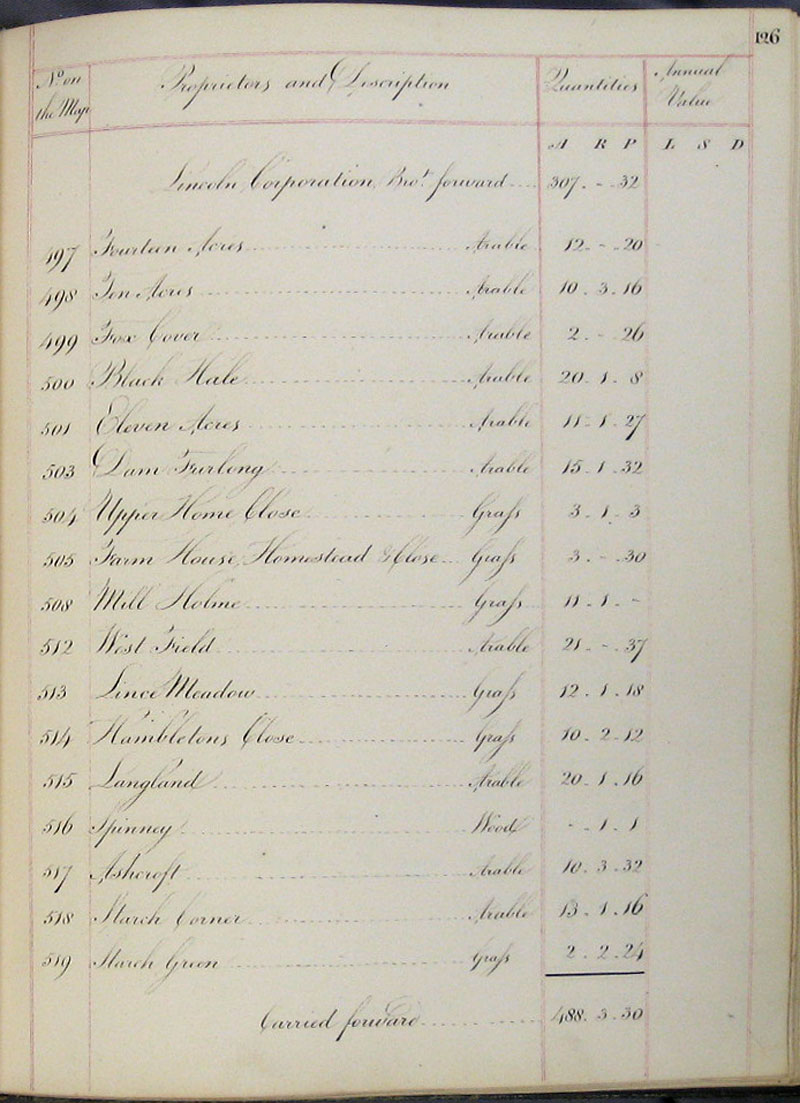 126
No on the Map Proprietors and Description Quantities Annual Value
A R P L S D
Lincoln Corporation Brot forward 307 . - . 32
497 Fourteen Acres Arable 12 . - . 20
498 Ten Acres Arable 10 . 3 . 16
499 Fox Cover Arable 2 . - . 26
500 Black Hale Arable 20 . 1 . 8
501 Eleven Acres Arable 11 . 1 . 27
503 Dam Furlong Arable 15 . 1 . 32
504 Upper Home Close Grass 3 . 1 . 3
505 Farm House, Homestead & Close Grass 3 . - . 30
508 Mill Holme Grass 11 . 1 . -
512 West Field Arable 21 . - . 37
513 Lince Meadow Grass 12 . 1 . 18
514 Hambletons Close Grass 10 . 2 . 12
515 Langland Arable 20 . 1 . 16
516 Spinney Wood - . 1 . 1
517 Ashcroft Arable 10 . 3 . 32
518 Starch Corner Arable 13 . 1 . 16
519 Starch Green Grass 2 . 2 . 24
Carried forward 488 . 3 . 30